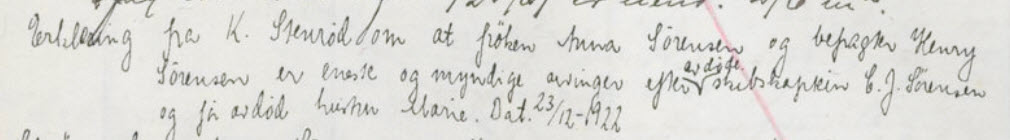 Erklæring fra K. Stenrød om at fröken Anna Sörensen og befragter Henry
Sörensen er eneste og myndige arvinger efter avdøde skibskaptein C. J. Sörensen
og för avdöd hustru Marie. Dat. 23/12-1922